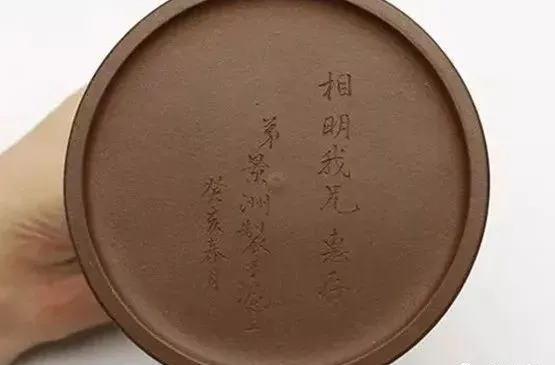 相明我兄惠存
弟景洲製于滬上
癸亥春月